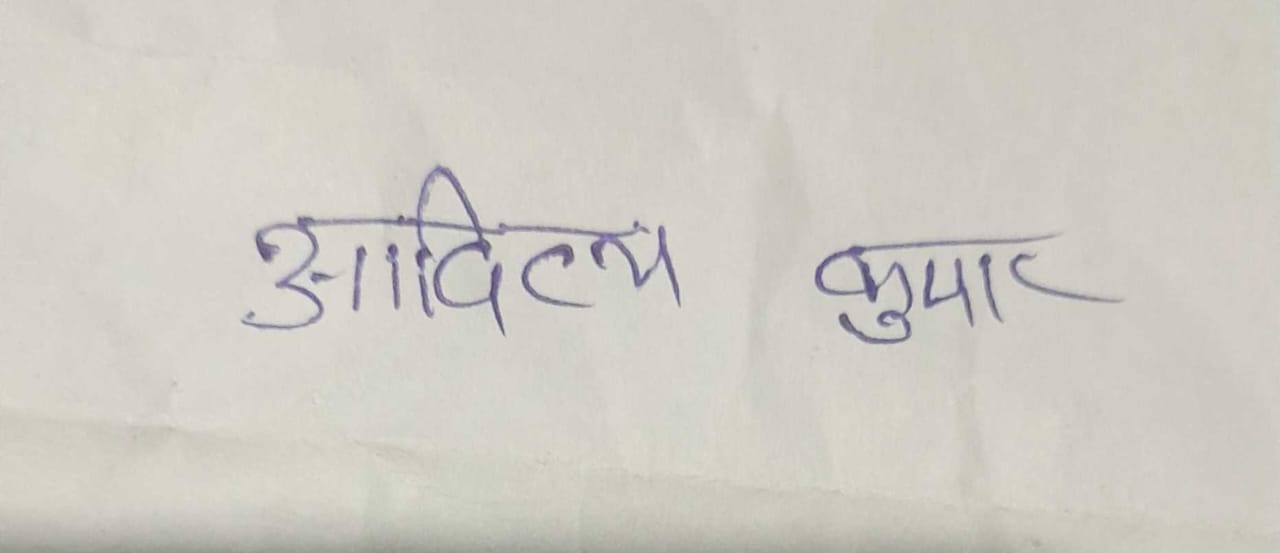 आदित्य कुमार